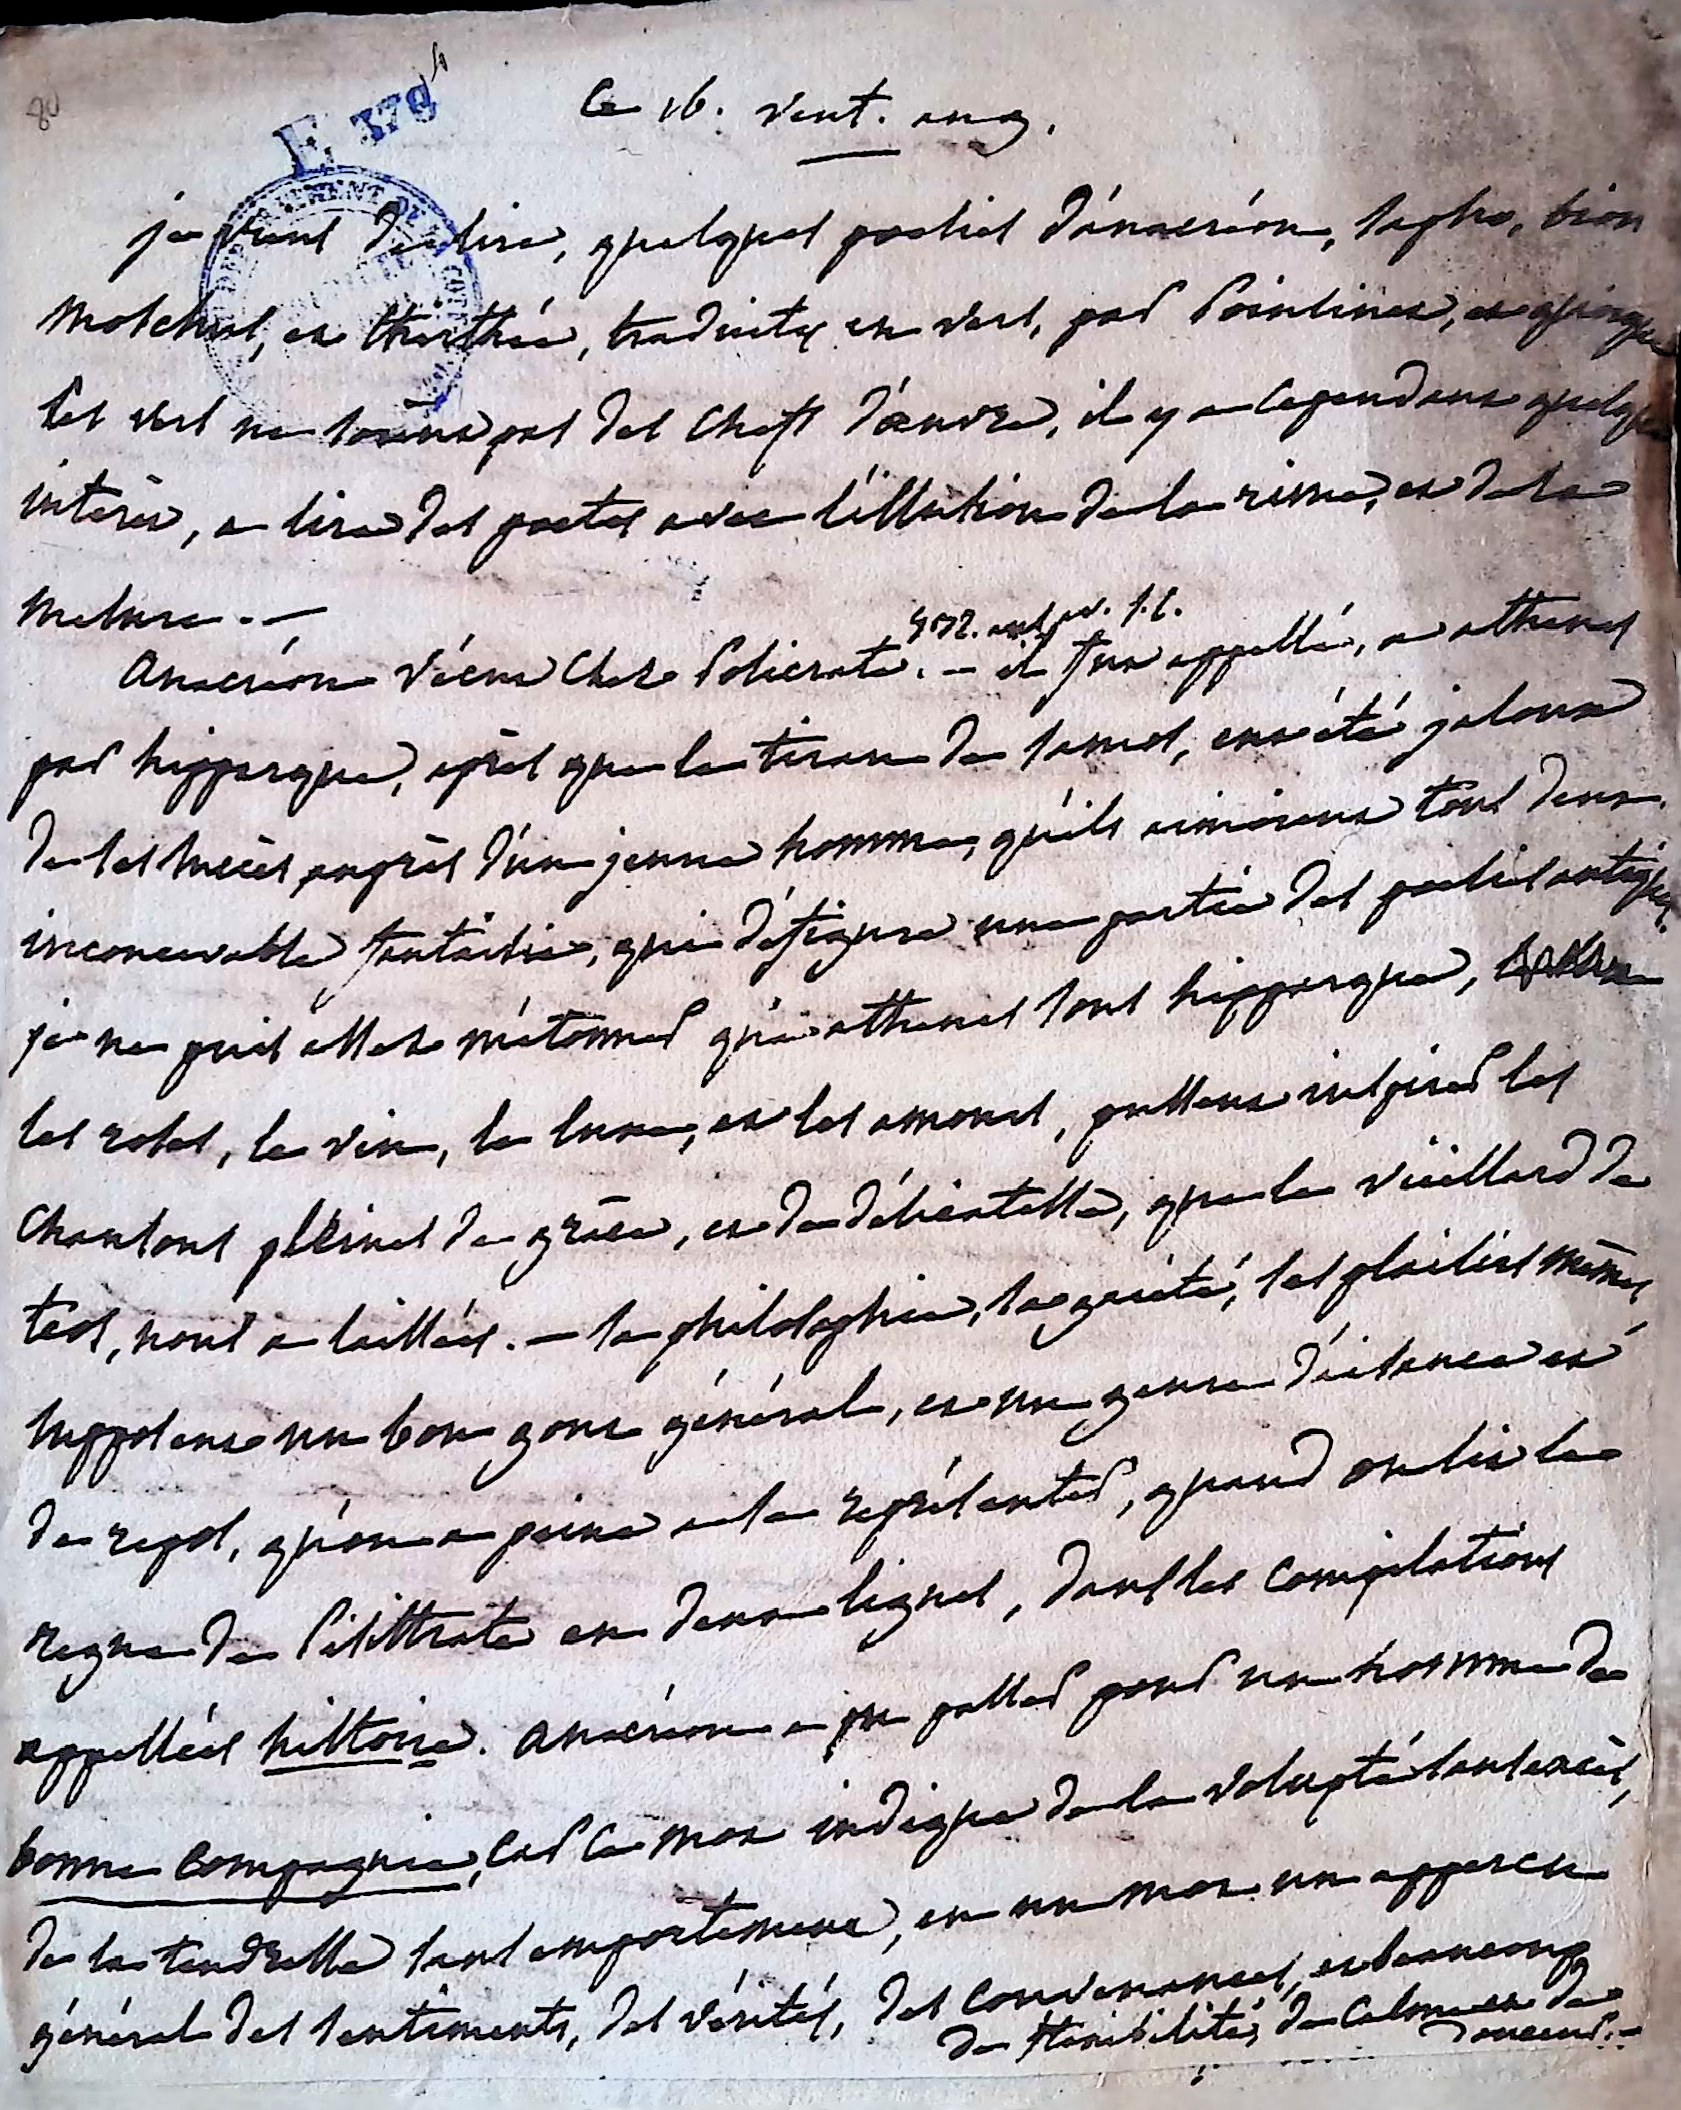 80
E 378
Ce 16. vent. an 9.
je viens de lire, quelques poesies d'anacréon, sapho, bion
moschus, et thirthée, traduites en vers, par Poinsinet, et quoique
ses vers ne soient pas des chefs d'œuvre, il y a cependant quelque
interêt, a lire des poetes avec l'illusion de la rime, et de la
mesure. —
532. ans av. J.C.
anacréon vécut chez Policrate. — il fut appellé, a athenes
par hipparque, après que le tiran de samos, eut été jaloux
de ses succès auprès d'un jeune homme, qu'ils aimoient tous deux.
inconcevable fantaisie, qui défigure une partie des poesies antiques.
je ne puis assez m'étonner qu'a athenes sous hipparque,
les roses, le vin, la lune, et les amours, pussent inspirer les
chansons pleines de grâce, et de délicatesse, que le vieillard de
teos, nous a laissées. — la philosophie, la gaieté, les plaisirs mêmes,
supposent un bon gout général, et un genre d'aisance et
de repos, qu'on a peine a se représenter, quand on lit le
regne de Pisistrate en deux lignes, dans les compilations
appellées histoire. anacréon a pu passer pour un homme de
bonne compagnie, car ce mot indique de la volupté sans excès,
de la tendresse sans emportement, en un mot un apperçu
général des sentiments, des vérités, des convenances, et beaucoup
de flexibilité, de calme et de
douceur. —